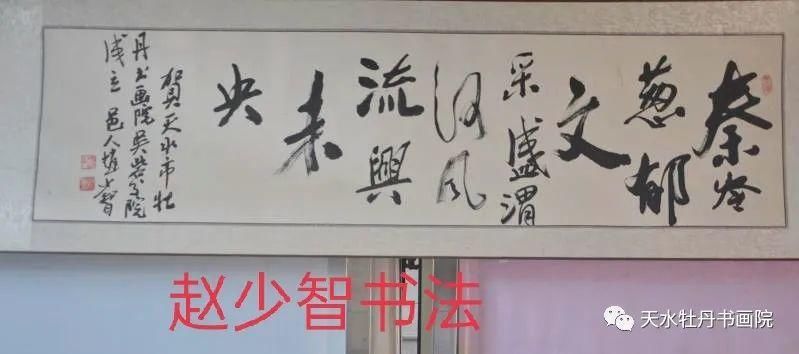 秦岺
葱郁
文
采盛渭
河风
流興
未
央
賀天水市牡
丹书画院吴砦分院
成立 邑人趙少智
赵少智书法
天水牡丹书画院